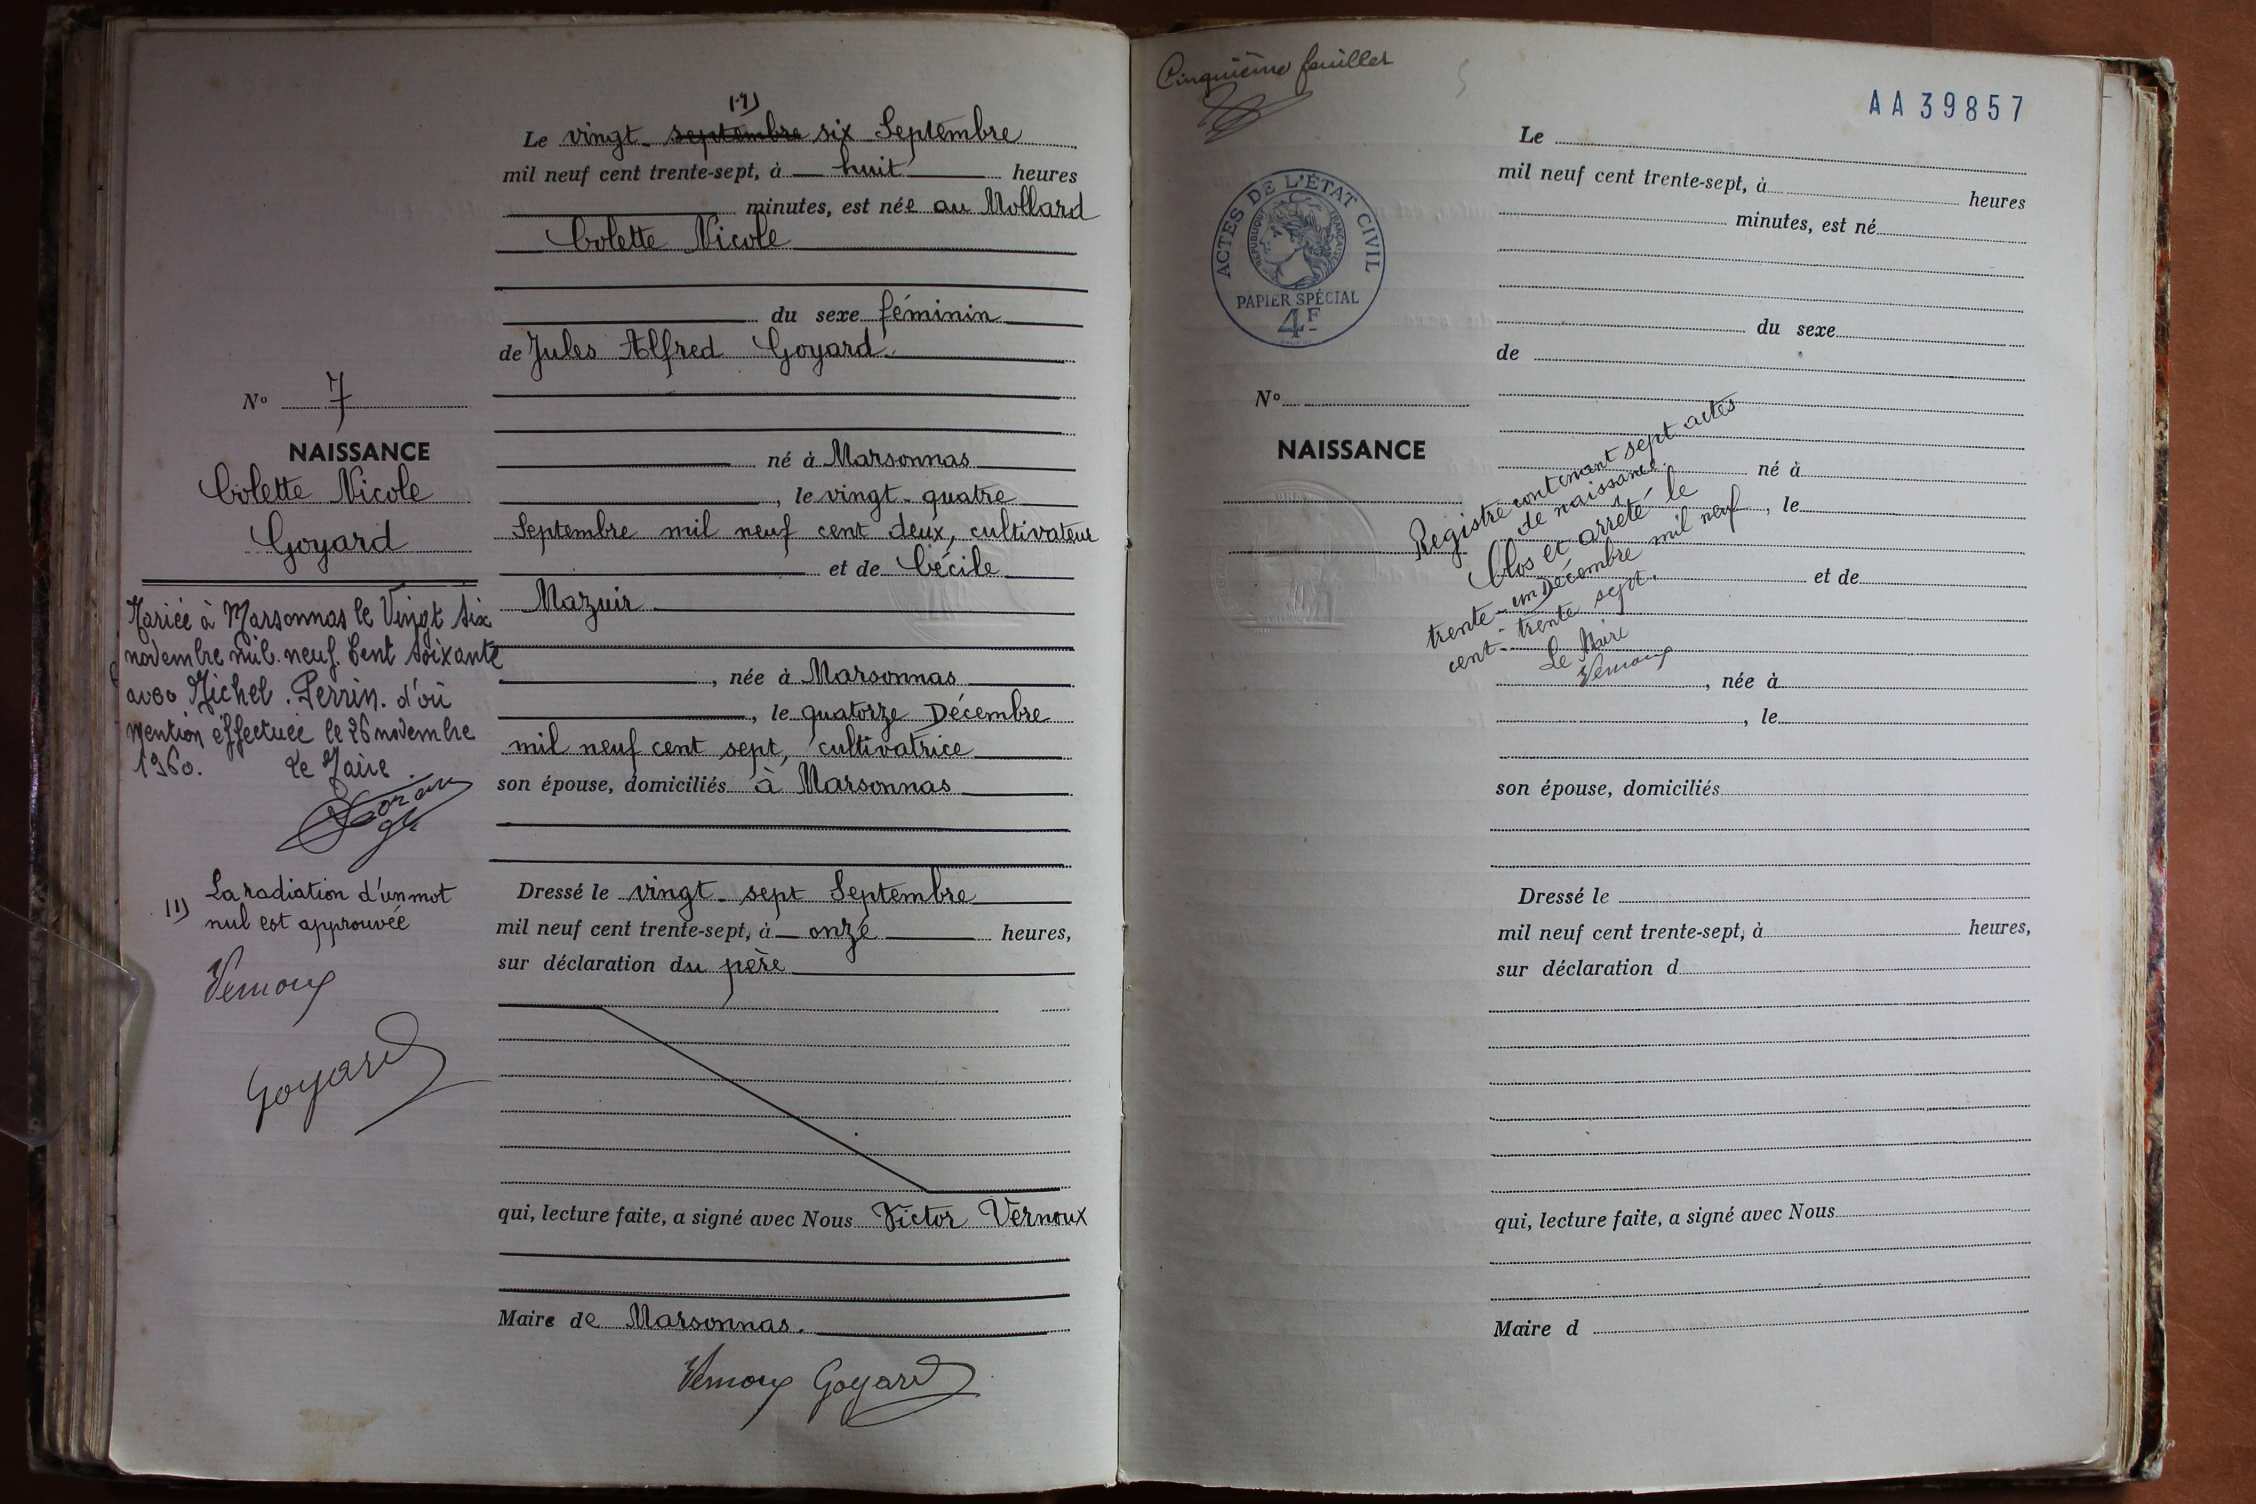 (1)
Le vingt-septembre six Septembre
mil neuf cent trente-sept, à huit heures
minutes, est née au Mollard
Colette Nicole
du sexe féminin
de Jules Alfred Goyard
né à Marsonnas
, le vingt-quatre
Septembre mil neuf cent deux, cultivateur
et de Cécile
Mazuir
, née à Marsonnas
, le quatorze Décembre
mil neuf cent sept, cultivatrice
son épouse, domiciliés à Marsonnas
Dressé le vingt-sept Septembre
mil neuf cent trente-sept, à onze heures,
sur déclaration du père
qui, lecture faite, a signé avec Nous Victor Vernoux
Maire de Marsonnas.
Vernoux Goyard
No 7
NAISSANCE
Colette Nicole
Goyard
Mariée à Marsonnas le Vingt Six
novembre mil neuf Cent Soixante
avec Michel Perrin. d'où
mention éffectuée le 26 novembre
1960. Le Maire.
(1) La radiation d'un mot
nul est approuvée
Vernoux
Goyard
Cinquième feuillet
5
AA39857
ACTES DE L'ÉTAT CIVIL
RÉPUBLIQUE FRANÇAISE
PAPIER SPÉCIAL
4F
Le
mil neuf cent trente-sept, à heures
minutes, est né
du sexe
de
No
NAISSANCE
né à
, le
et de
, née à
, le
son épouse, domiciliés
Dressé le
mil neuf cent trente-sept, à heures,
sur déclaration d
qui, lecture faite, a signé avec Nous
Maire d
Registre contenant sept actes
de naissance.
Clos et arrêté le
trente-un Décembre mil neuf
cent-trente sept.
Le Maire
Vernoux